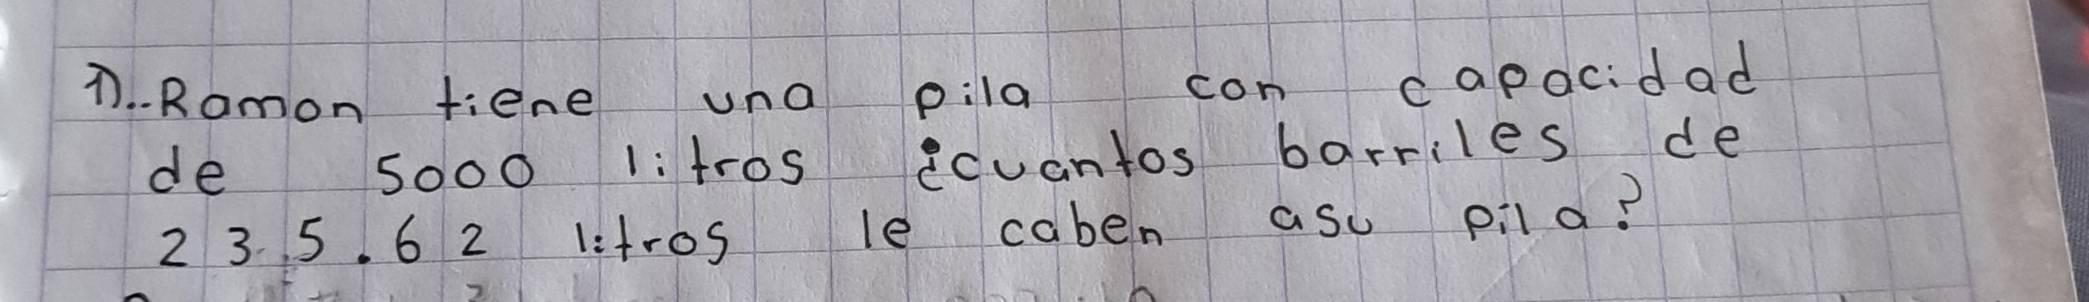 1).. Ramon tiene una pila con capacidad
de 5000 litros ¿cuantos barriles de
235.62 litros le caben asu pila?